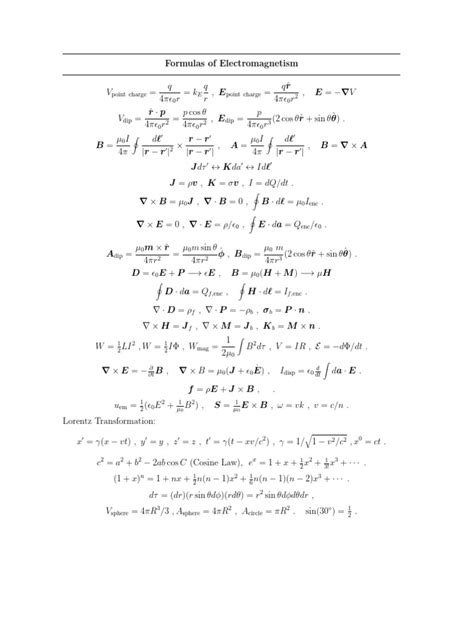 Formulas of Electromagnetism
V_point charge = q/(4πϵ₀r) = k_E q/r , E_point charge = q r̂/(4πϵ₀r²) , E = −∇V
V_dip = r̂ · p/(4πϵ₀r²) = p cos θ/(4πϵ₀r²) , E_dip = p/(4πϵ₀r³) (2 cos θ r̂ + sin θ θ̂) .
B = μ₀I/4π ∮ dℓ′/|r − r′|² × (r − r′)/|r − r′| , A = μ₀I/4π ∮ dℓ′/|r − r′| , B = ∇ × A
J dτ′ ↔ K da′ ↔ I dℓ′
J = ρv , K = σv , I = dQ/dt .
∇ × B = μ₀J , ∇ · B = 0 , ∮ B · dℓ = μ₀I_enc .
∇ × E = 0 , ∇ · E = ρ/ϵ₀ , ∮ E · da = Q_enc/ϵ₀ .
A_dip = μ₀m × r̂/(4πr²) = μ₀m sin θ/(4πr²) ϕ̂ , B_dip = μ₀ m/(4πr³) (2 cos θ r̂ + sin θ θ̂) .
D = ϵ₀E + P ⟶ ϵE , B = μ₀(H + M) ⟶ μH
∮ D · da = Q_f,enc , ∮ H · dℓ = I_f,enc .
∇ · D = ρ_f , ∇ · P = −ρ_b , σ_b = P · n .
∇ × H = J_f , ∇ × M = J_b , K_b = M × n .
W = ½LI² , W = ½IΦ , W_mag = 1/(2μ₀) ∫ B²dτ , V = IR , ℰ = −dΦ/dt .
∇ × E = −∂/∂t B , ∇ × B = μ₀(J + ϵ₀Ė) , I_disp = ϵ₀ d/dt ∫ da · E .
f = ρE + J × B , .
u_em = ½(ϵ₀E² + 1/μ₀ B²) , S = 1/μ₀ E × B , ω = vk , v = c/n .
Lorentz Transformation:
x′ = γ(x − vt) , y′ = y , z′ = z , t′ = γ(t − xv/c²) , γ = 1/√(1 − v²/c²) , x⁰ = ct .
c² = a² + b² − 2ab cos C (Cosine Law), eˣ = 1 + x + ½x² + 1/3! x³ + ··· .
(1 + x)ⁿ = 1 + nx + ½n(n − 1)x² + ⅙n(n − 1)(n − 2)x³ + ··· .
dτ = (dr)(r sin θdϕ)(rdθ) = r² sin θdϕdθdr ,
V_sphere = 4πR³/3 , A_sphere = 4πR² , A_circle = πR² . sin(30°) = ½ .